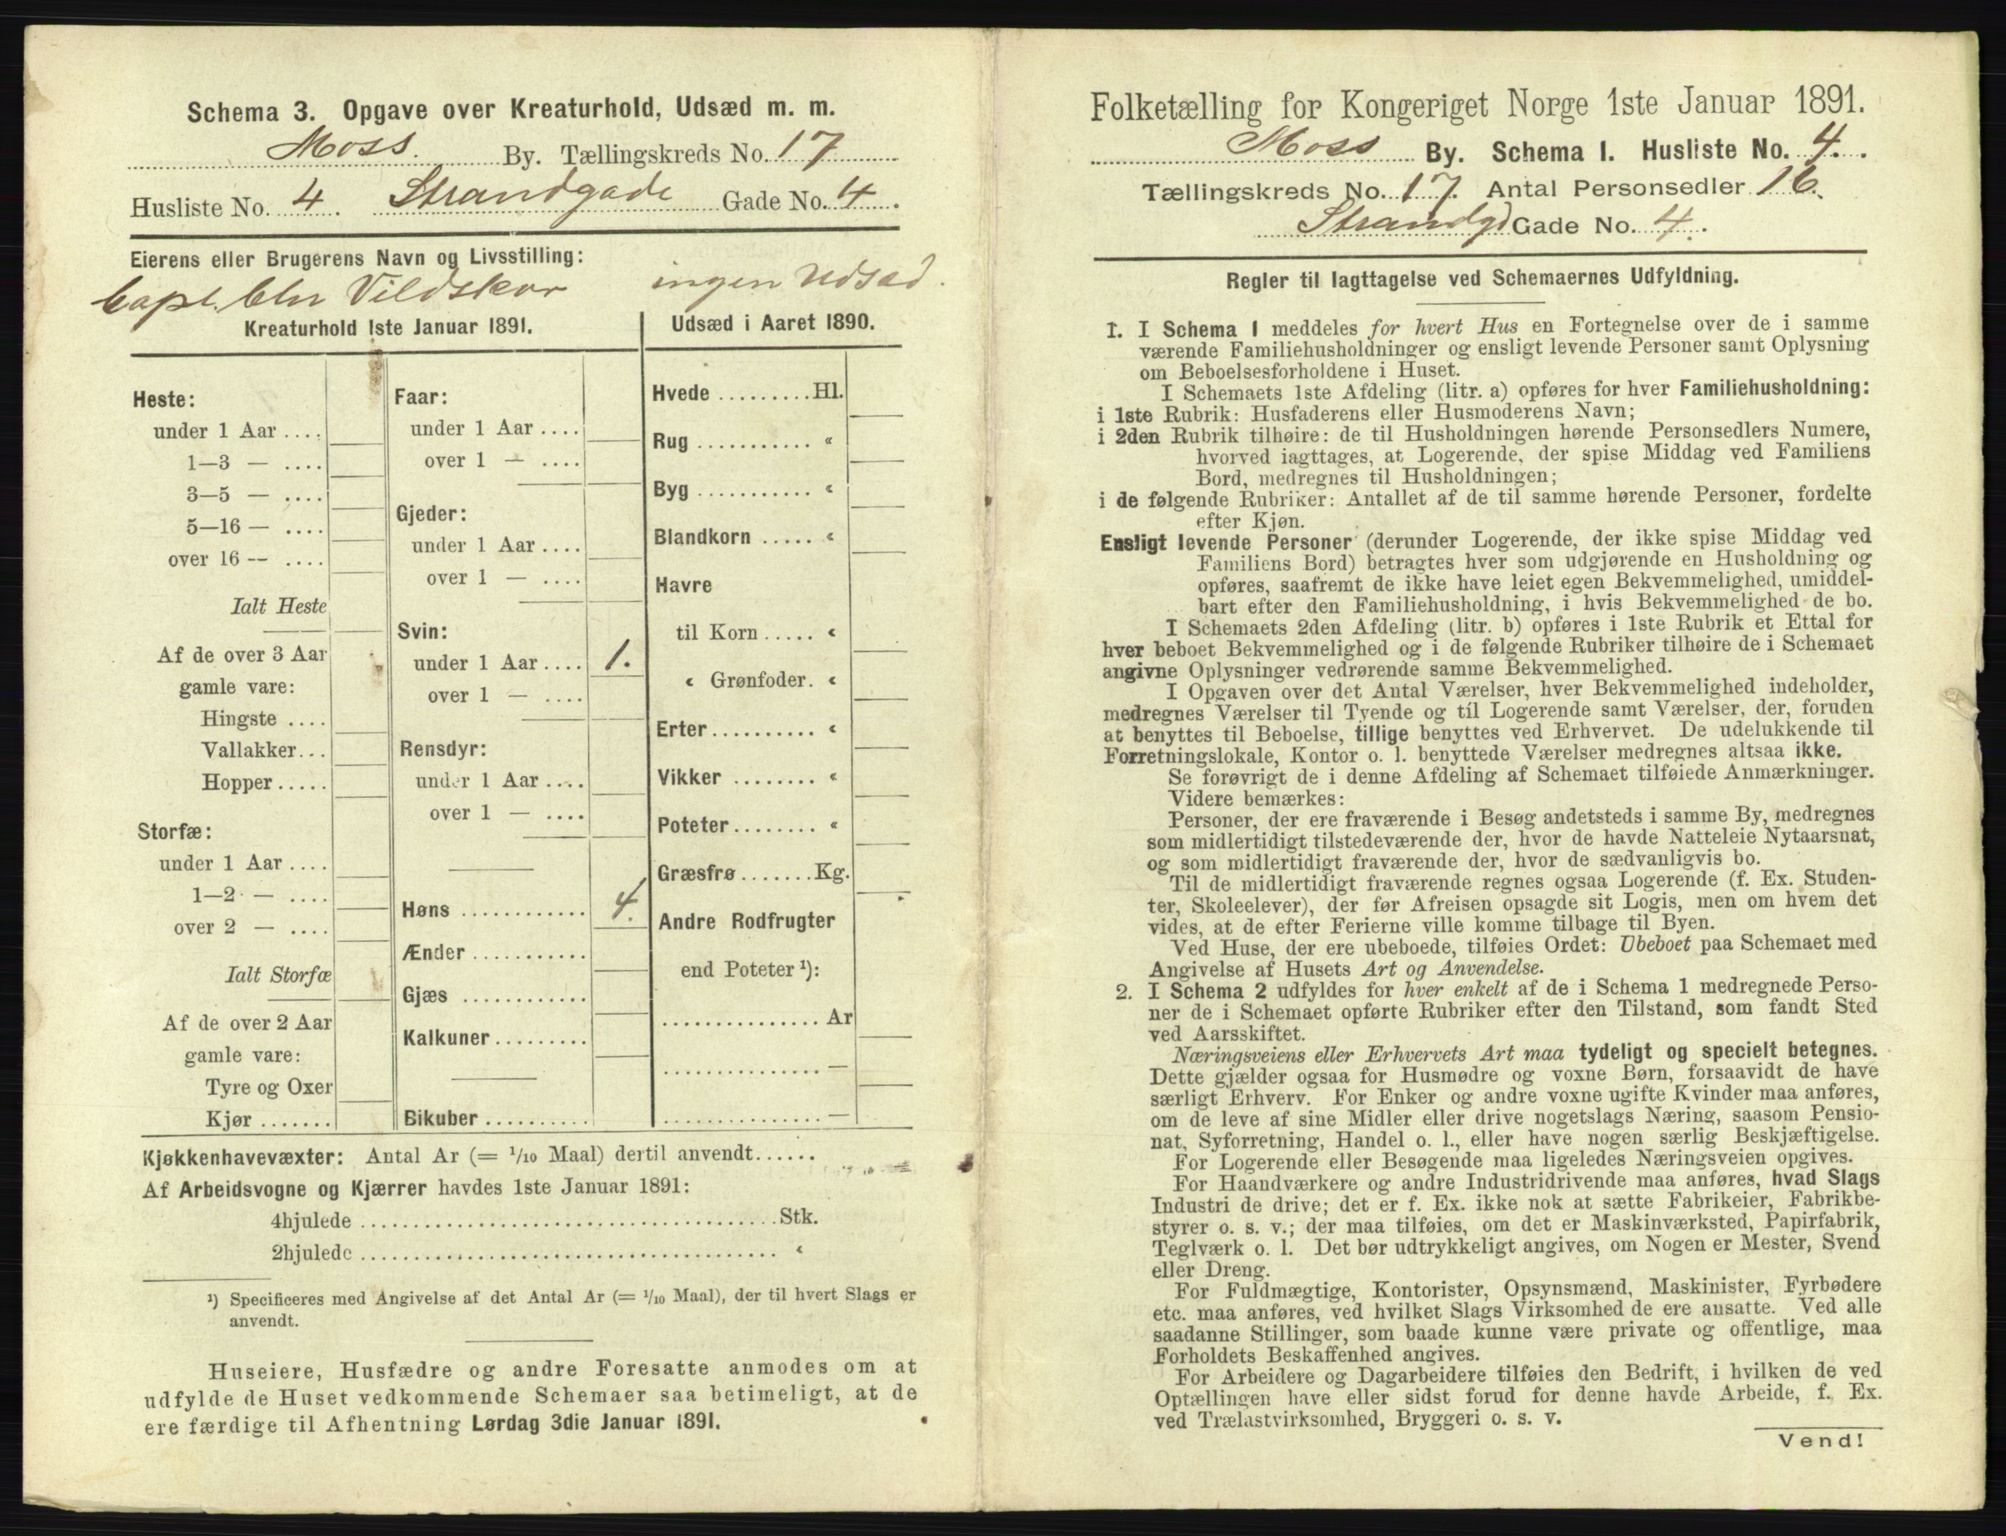 Schema 3. Opgave over Kreaturhold, Udsæd m. m.
Moss. By. Tællingskreds No. 17
Husliste No. 4. Strandgade Gade No. 4.
Eierens eller Brugerens Navn og Livsstilling:
Capt. Chr Vildskov ingen Udsæd.
Kreaturhold 1ste Januar 1891.
Udsæd i Aaret 1890.
Heste:
under 1 Aar ....
1—3 — ....
3—5 — ....
5—16 — ....
over 16 — ....
Ialt Heste
Af de over 3 Aar
gamle vare:
Hingste ....
Vallakker...
Hopper.....
Storfæ:
under 1 Aar ....
1—2 — ....
over 2 — ....
Ialt Storfæ
Af de over 2 Aar
gamle vare:
Tyre og Oxer
Kjør .......
Faar:
under 1 Aar ....
over 1 — ....
Gjeder:
under 1 Aar ....
over 1 — ....
Svin:
under 1 Aar .... 1.
over 1 — ....
Rensdyr:
under 1 Aar ....
over 1 — ....
Høns ............ 4.
Ænder ...........
Gjæs ............
Kalkuner.........
Bikuber ..........
Hvede .........Hl.
Rug ........... «
Byg ........... «
Blandkorn ..... «
Havre
til Korn ..... «
« Grønfoder. «
Erter .......... «
Vikker ........ «
Poteter........ «
Græsfrø.......Kg.
Andre Rodfrugter
end Poteter ¹):
............... Ar
............... —
............... —
Kjøkkenhavevæxter: Antal Ar (= ¹/₁₀ Maal) dertil anvendt......
Af Arbeidsvogne og Kjærrer havdes 1ste Januar 1891:
4hjulede ........................................Stk.
2hjulede ........................................ «
¹) Specificeres med Angivelse af det Antal Ar (= ¹/₁₀ Maal), der til hvert Slags er
anvendt.
Huseiere, Husfædre og andre Foresatte anmodes om at
udfylde de Huset vedkommende Schemaer saa betimeligt, at de
ere færdige til Afhentning Lørdag 3die Januar 1891.
Folketælling for Kongeriget Norge 1ste Januar 1891.
Moss By. Schema 1. Husliste No. 4.
Tællingskreds No. 17. Antal Personsedler 16.
Strandgd Gade No. 4.
Regler til Iagttagelse ved Schemaernes Udfyldning.
1. I Schema 1 meddeles for hvert Hus en Fortegnelse over de i samme
værende Familiehusholdninger og ensligt levende Personer samt Oplysning
om Beboelsesforholdene i Huset.
I Schemaets 1ste Afdeling (litr. a) opføres for hver Familiehusholdning:
i 1ste Rubrik: Husfaderens eller Husmoderens Navn;
i 2den Rubrik tilhøire: de til Husholdningen hørende Personsedlers Numere,
hvorved iagttages, at Logerende, der spise Middag ved Familiens
Bord, medregnes til Husholdningen;
i de følgende Rubriker: Antallet af de til samme hørende Personer, fordelte
efter Kjøn.
Ensligt levende Personer (derunder Logerende, der ikke spise Middag ved
Familiens Bord) betragtes hver som udgjørende en Husholdning og
opføres, saafremt de ikke have leiet egen Bekvemmelighed, umiddel-
bart efter den Familiehusholdning, i hvis Bekvemmelighed de bo.
I Schemaets 2den Afdeling (litr. b) opføres i 1ste Rubrik et Ettal for
hver beboet Bekvemmelighed og i de følgende Rubriker tilhøire de i Schemaet
angivne Oplysninger vedrørende samme Bekvemmelighed.
I Opgaven over det Antal Værelser, hver Bekvemmelighed indeholder,
medregnes Værelser til Tyende og til Logerende samt Værelser, der, foruden
at benyttes til Beboelse, tillige benyttes ved Erhvervet. De udelukkende til
Forretningslokale, Kontor o. l. benyttede Værelser medregnes altsaa ikke.
Se forøvrigt de i denne Afdeling af Schemaet tilføiede Anmærkninger.
Videre bemærkes:
Personer, der ere fraværende i Besøg andetsteds i samme By, medregnes
som midlertidigt tilstedeværende der, hvor de havde Natteleie Nytaarsnat,
og som midlertidigt fraværende der, hvor de sædvanligvis bo.
Til de midlertidigt fraværende regnes ogsaa Logerende (f. Ex. Studen-
ter, Skoleelever), der før Afreisen opsagde sit Logis, men om hvem det
vides, at de efter Ferierne ville komme tilbage til Byen.
Ved Huse, der ere ubeboede, tilføies Ordet: Ubeboet paa Schemaet med
Angivelse af Husets Art og Anvendelse.
2. I Schema 2 udfyldes for hver enkelt af de i Schema 1 medregnede Perso-
ner de i Schemaet opførte Rubriker efter den Tilstand, som fandt Sted
ved Aarsskiftet.
Næringsveiens eller Erhvervets Art maa tydeligt og specielt betegnes.
Dette gjælder ogsaa for Husmødre og voxne Børn, forsaavidt de have
særligt Erhverv. For Enker og andre voxne ugifte Kvinder maa anføres,
om de leve af sine Midler eller drive nogetslags Næring, saasom Pensio-
nat, Syforretning, Handel o. l., eller have nogen særlig Beskjæftigelse.
For Logerende eller Besøgende maa ligeledes Næringsveien opgives.
For Haandværkere og andre Industridrivende maa anføres, hvad Slags
Industri de drive; det er f. Ex. ikke nok at sætte Fabrikeier, Fabrikbe-
styrer o. s. v.; der maa tilføies, om det er Maskinværksted, Papirfabrik,
Teglværk o. l. Det bør udtrykkeligt angives, om Nogen er Mester, Svend
eller Dreng.
For Fuldmægtige, Kontorister, Opsynsmænd, Maskinister, Fyrbødere
etc. maa anføres, ved hvilket Slags Virksomhed de ere ansatte. Ved alle
saadanne Stillinger, som baade kunne være private og offentlige, maa
Forholdets Beskaffenhed angives.
For Arbeidere og Dagarbeidere tilføies den Bedrift, i hvilken de ved
Optællingen have eller sidst forud for denne havde Arbeide, f. Ex.
ved Trælastvirksomhed, Bryggeri o. s. v.
Vend!